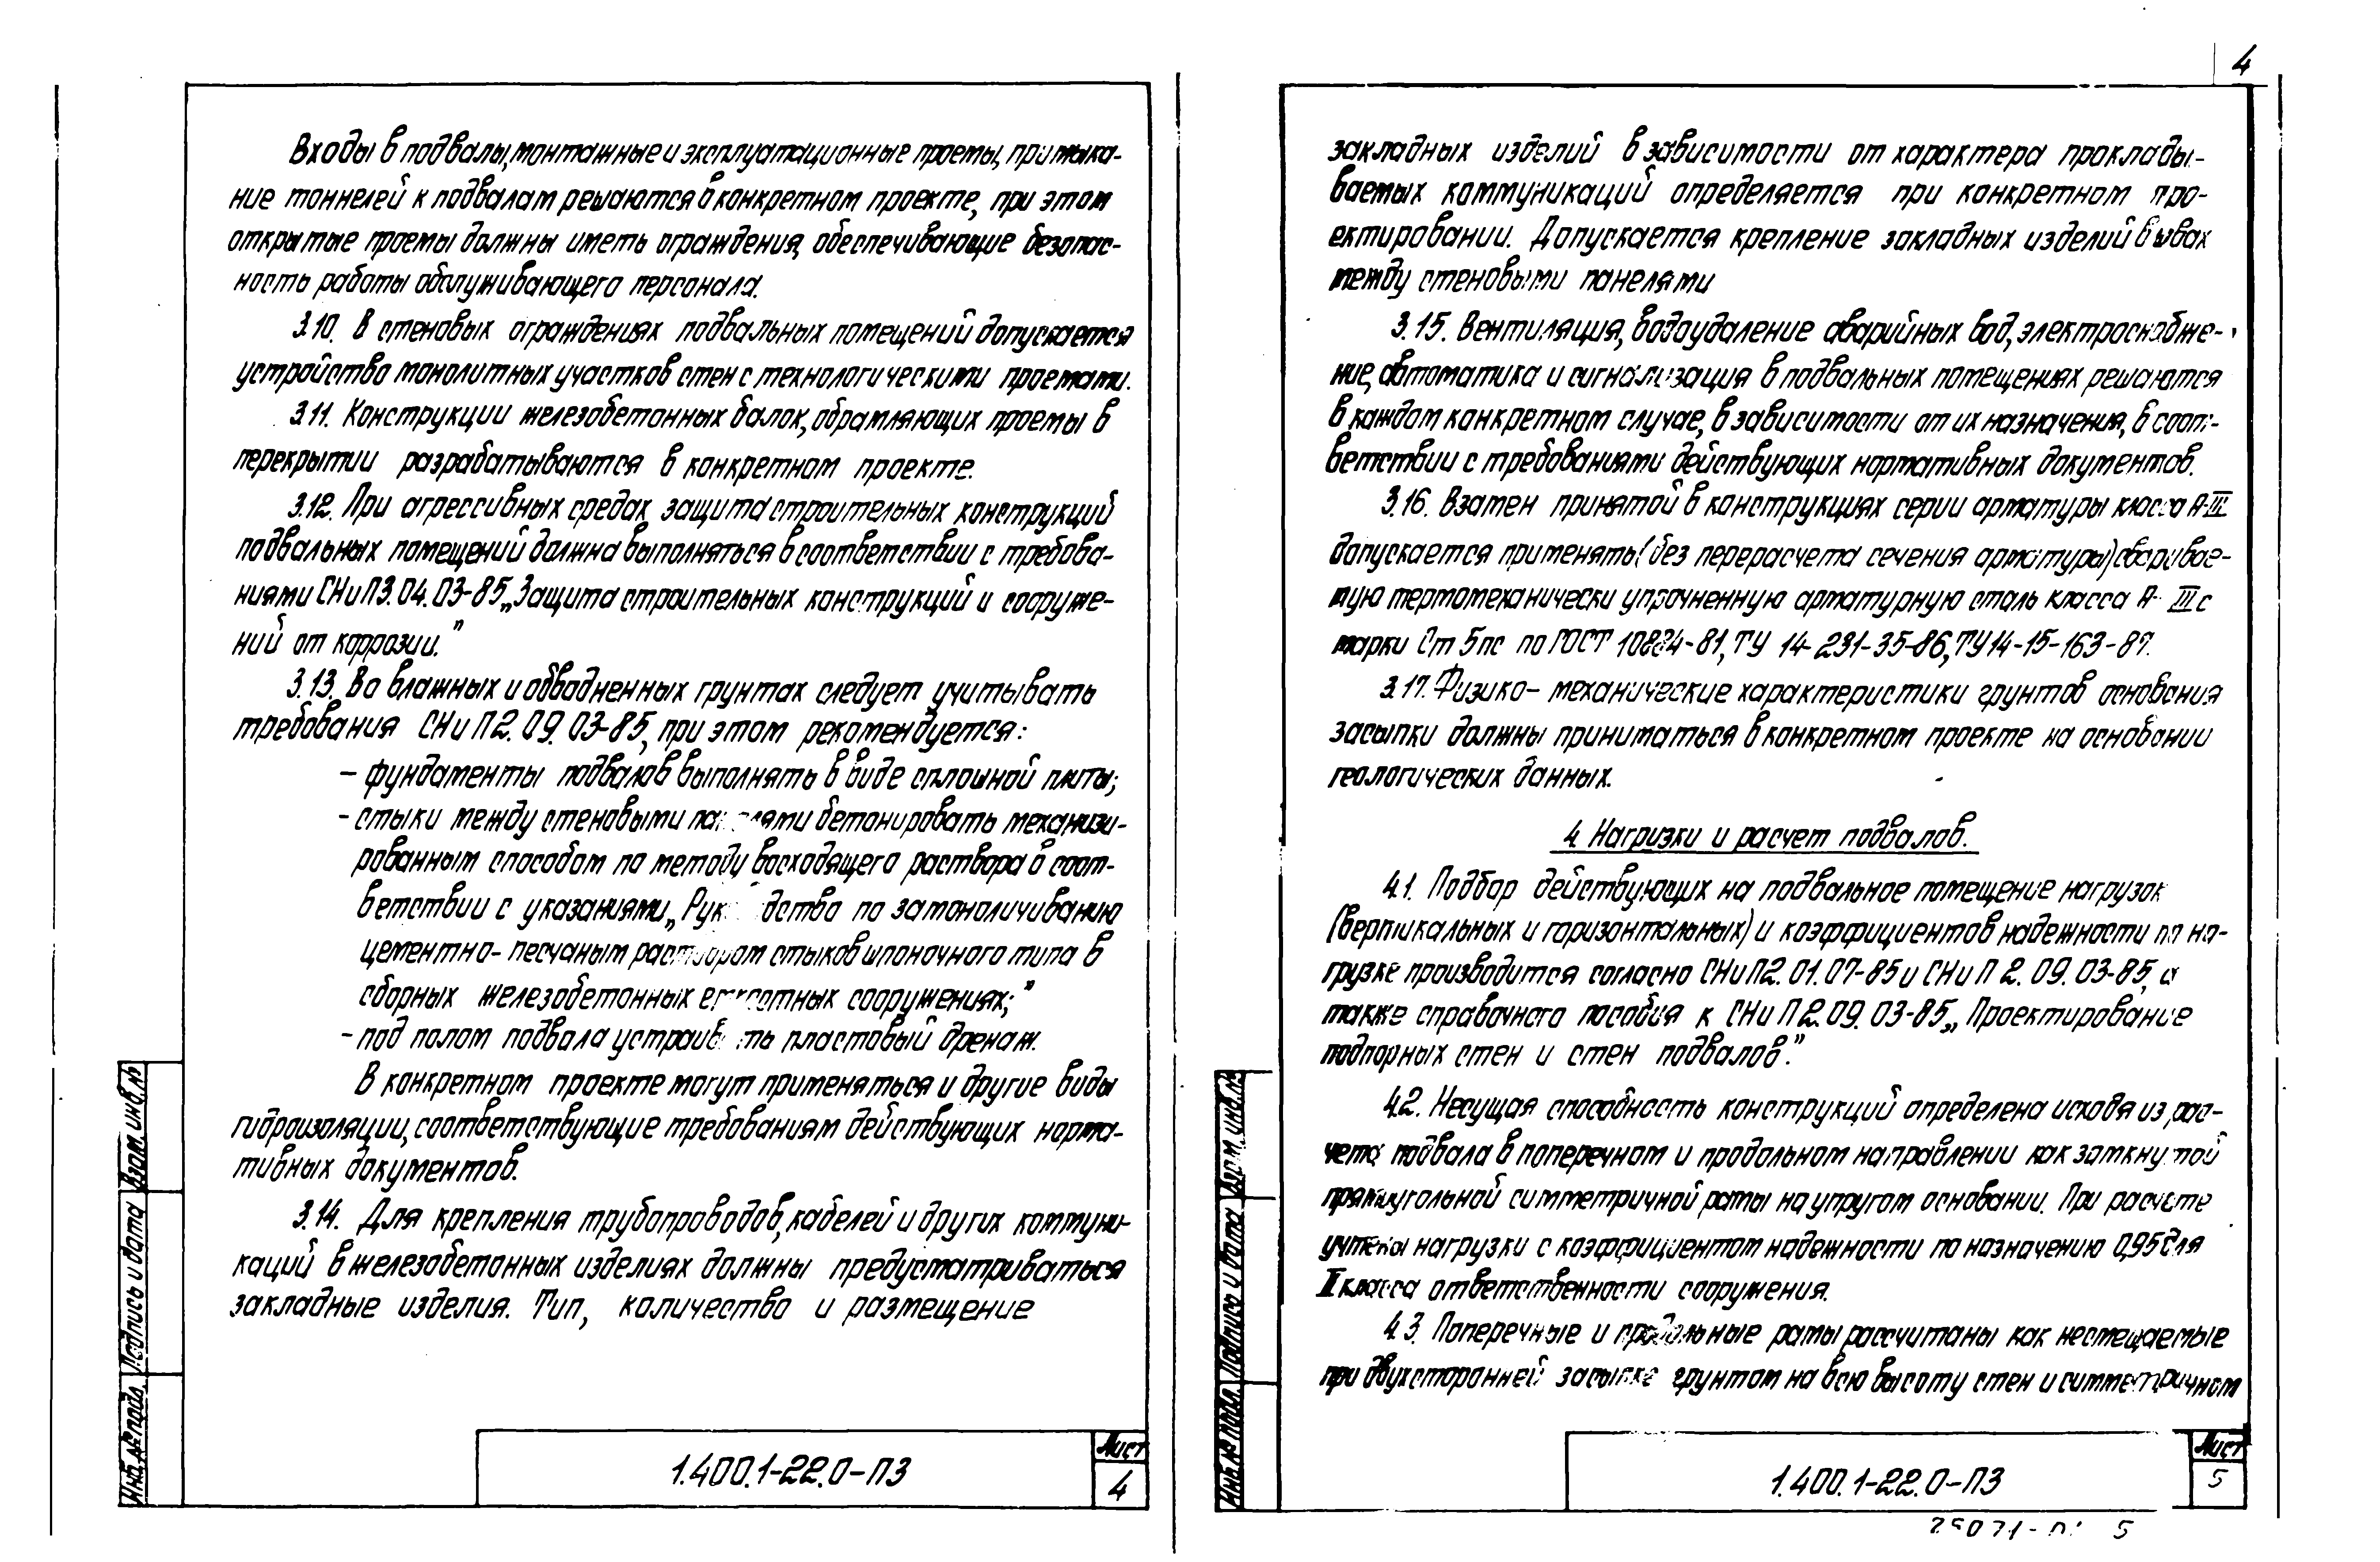 4
Входы в подвалы, монтажные и эксплуатационные проемы, примыка-
ние тоннелей к подвалам решаются в конкретном проекте, при этом
открытые проемы должны иметь ограждения, обеспечивающие безопас-
ность работы обслуживающего персонала.
3.10. В стеновых ограждениях подвальных помещений допускается
устройство монолитных участков стен с технологическими проемами.
3.11. Конструкции железобетонных балок, обрамляющих проемы в
перекрытии разрабатываются в конкретном проекте.
3.12. При агрессивных средах защита строительных конструкций
подвальных помещений должна выполняться в соответствии с требова-
ниями СНиП 3.04.03-85 „Защита строительных конструкций и сооруже-
ний от коррозии."
3.13. Во влажных и обводненных грунтах следует учитывать
требования СНиП 2.09.03-85, при этом рекомендуется:
- фундаменты подвалов выполнять в виде сплошной плиты;
- стыки между стеновыми панелями бетонировать механизи-
рованным способом по методу восходящего раствора в соот-
ветствии с указаниями „Руководство по замоноличиванию
цементно-песчаным раствором стыков шпоночного типа в
сборных железобетонных емкостных сооружениях;"
- под полом подвала устраивать пластовый дренаж.
В конкретном проекте могут применяться и другие виды
гидроизоляции, соответствующие требованиям действующих норма-
тивных документов.
3.14. Для крепления трубопроводов, кабелей и других коммуни-
каций в железобетонных изделиях должны предусматриваться
закладные изделия. Тип, количество и размещение
Взам. инв. №
Подпись и дата
Инв. № подл.
1.400.1-22.0-ПЗ
Лист
4
закладных изделий в зависимости от характера проклады-
ваемых коммуникаций определяется при конкретном про-
ектировании. Допускается крепление закладных изделий в швах
между стеновыми панелями
3.15. Вентиляция, водоудаление аварийных вод, электроснабже-
ние, автоматика и сигнализация в подвальных помещениях решаются
в каждом конкретном случае, в зависимости от их назначения, в соот-
ветствии с требованиями действующих нормативных документов.
3.16. Взамен принятой в конструкциях серии арматуры класса А-III
допускается применять (без перерасчета сечения арматуры) сваривае-
мую термомеханически упрочненную арматурную сталь класса А-III с
марки Ст 5пс по ГОСТ 10884-81, ТУ 14-231-35-86, ТУ 14-15-163-87.
3.17. Физико-механические характеристики грунтов основания
засыпки должны приниматься в конкретном проекте на основании
геологических данных.
4 Нагрузки и расчет подвалов.
4.1. Подбор действующих на подвальное помещение нагрузок
(вертикальных и горизонтальных) и коэффициентов надежности по на-
грузке производится согласно СНиП 2.01.07-85 и СНиП 2.09.03-85, а
также справочного пособия к СНиП 2.09.03-85 „Проектирование
подпорных стен и стен подвалов."
4.2. Несущая способность конструкций определена исходя из рас-
чета подвала в поперечном и продольном направлении как замкнутой
прямоугольной симметричной рамы на упругом основании. При расчете
учтены нагрузки с коэффициентом надежности по назначению 0,95 для
II класса ответственности сооружения.
4.3. Поперечные и продольные рамы рассчитаны как несмещаемые
при двухсторонней засыпке грунтом на всю высоту стен и симметричном
Взам. инв. №
Подпись и дата
Инв. № подл.
1.400.1-22.0-ПЗ
Лист
5
5